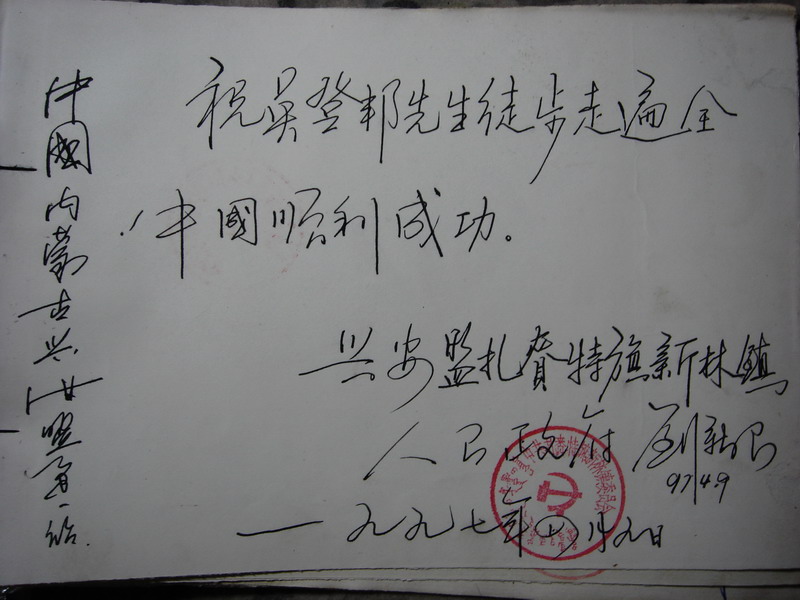 祝吴登邦先生徒步走遍全
中國顺利成功。
兴安盟扎賚特旗新林鎮
人民政府
97/4.9
一九九七年四月九日
中國内蒙古兴安盟